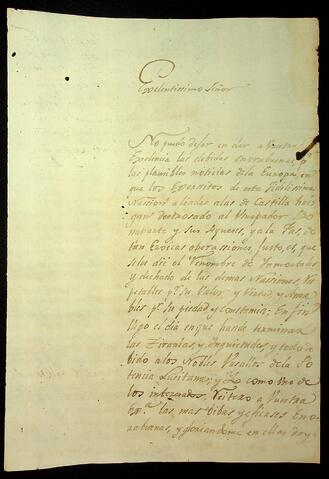 Excelentissimo Señor
No puedo dejar en dar a Vuestra
Excelencia las debidas enorabuenas, p.r
las plausibles noticias de la Europa, en
que los Exercitos de esta Fidelisima
Nassion aliados a las de Castilla haigan
destrosado al Usurpador Bonaparte
y sus Aqueses, y a la Pas, de
tan Eroicas operassiones, justo, es, que
se les dié el Renombre de Inmortales
y dechado de las demas Nassiones, Respetables
p.r su Valor y Virtud, y Amables
p.r su piedad y Constancia; En fin
llego el dia en que han de terminar
las Tiranias, y Inquietudes, y todo debido
a los Nobles Vasallos de la Potencia
Lusitana; y Yo como Uno de
los interesados, Reitero a Vuestra
Ex.a las, mas vibas y eficases Enorabuenas,
y gloriandome en ellas doy,